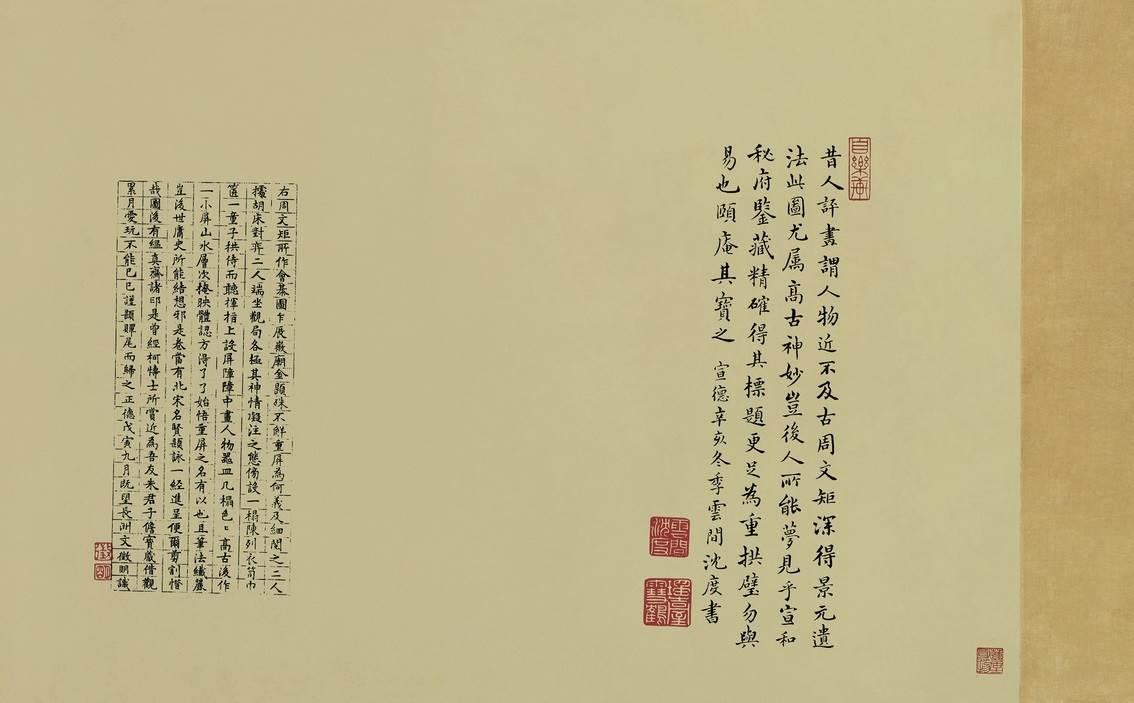 昔人評畫謂人物近不及古周文矩深得景元遺
法此圖尤属高古神妙豈後人所能夢見乎宣和
秘府鑒藏精確得其標題更足為重拱璧勿與
易也頤庵其寶之 宣德辛亥冬季雲間沈度書
雲間沈度
瑤臺雪鶴
右周文矩所作會棊圖乍展徽廟金題殊不解重屏為何義及細閱之二人
據胡床對弈二人端坐觀局各極其神情凝注之態傍設一榻陳列衣笥巾
篋一童子拱侍而聽揮指上設屏障障中畫人物器皿几榻色〻高古後作
一小屏山水層次掩映體認方得了了始悟重屏之名有以也且筆法纖麗
豈後世庸史所能結想邪是卷當有北宋名賢題詠一經進呈便爾剪割惜
哉圖後有緼真齋諸印是曾經柯博士所賞近為吾友朱君子儋寶藏借觀
累月愛玩不能已已謹題贉尾而歸之正德戊寅九月既望長洲文徵明識